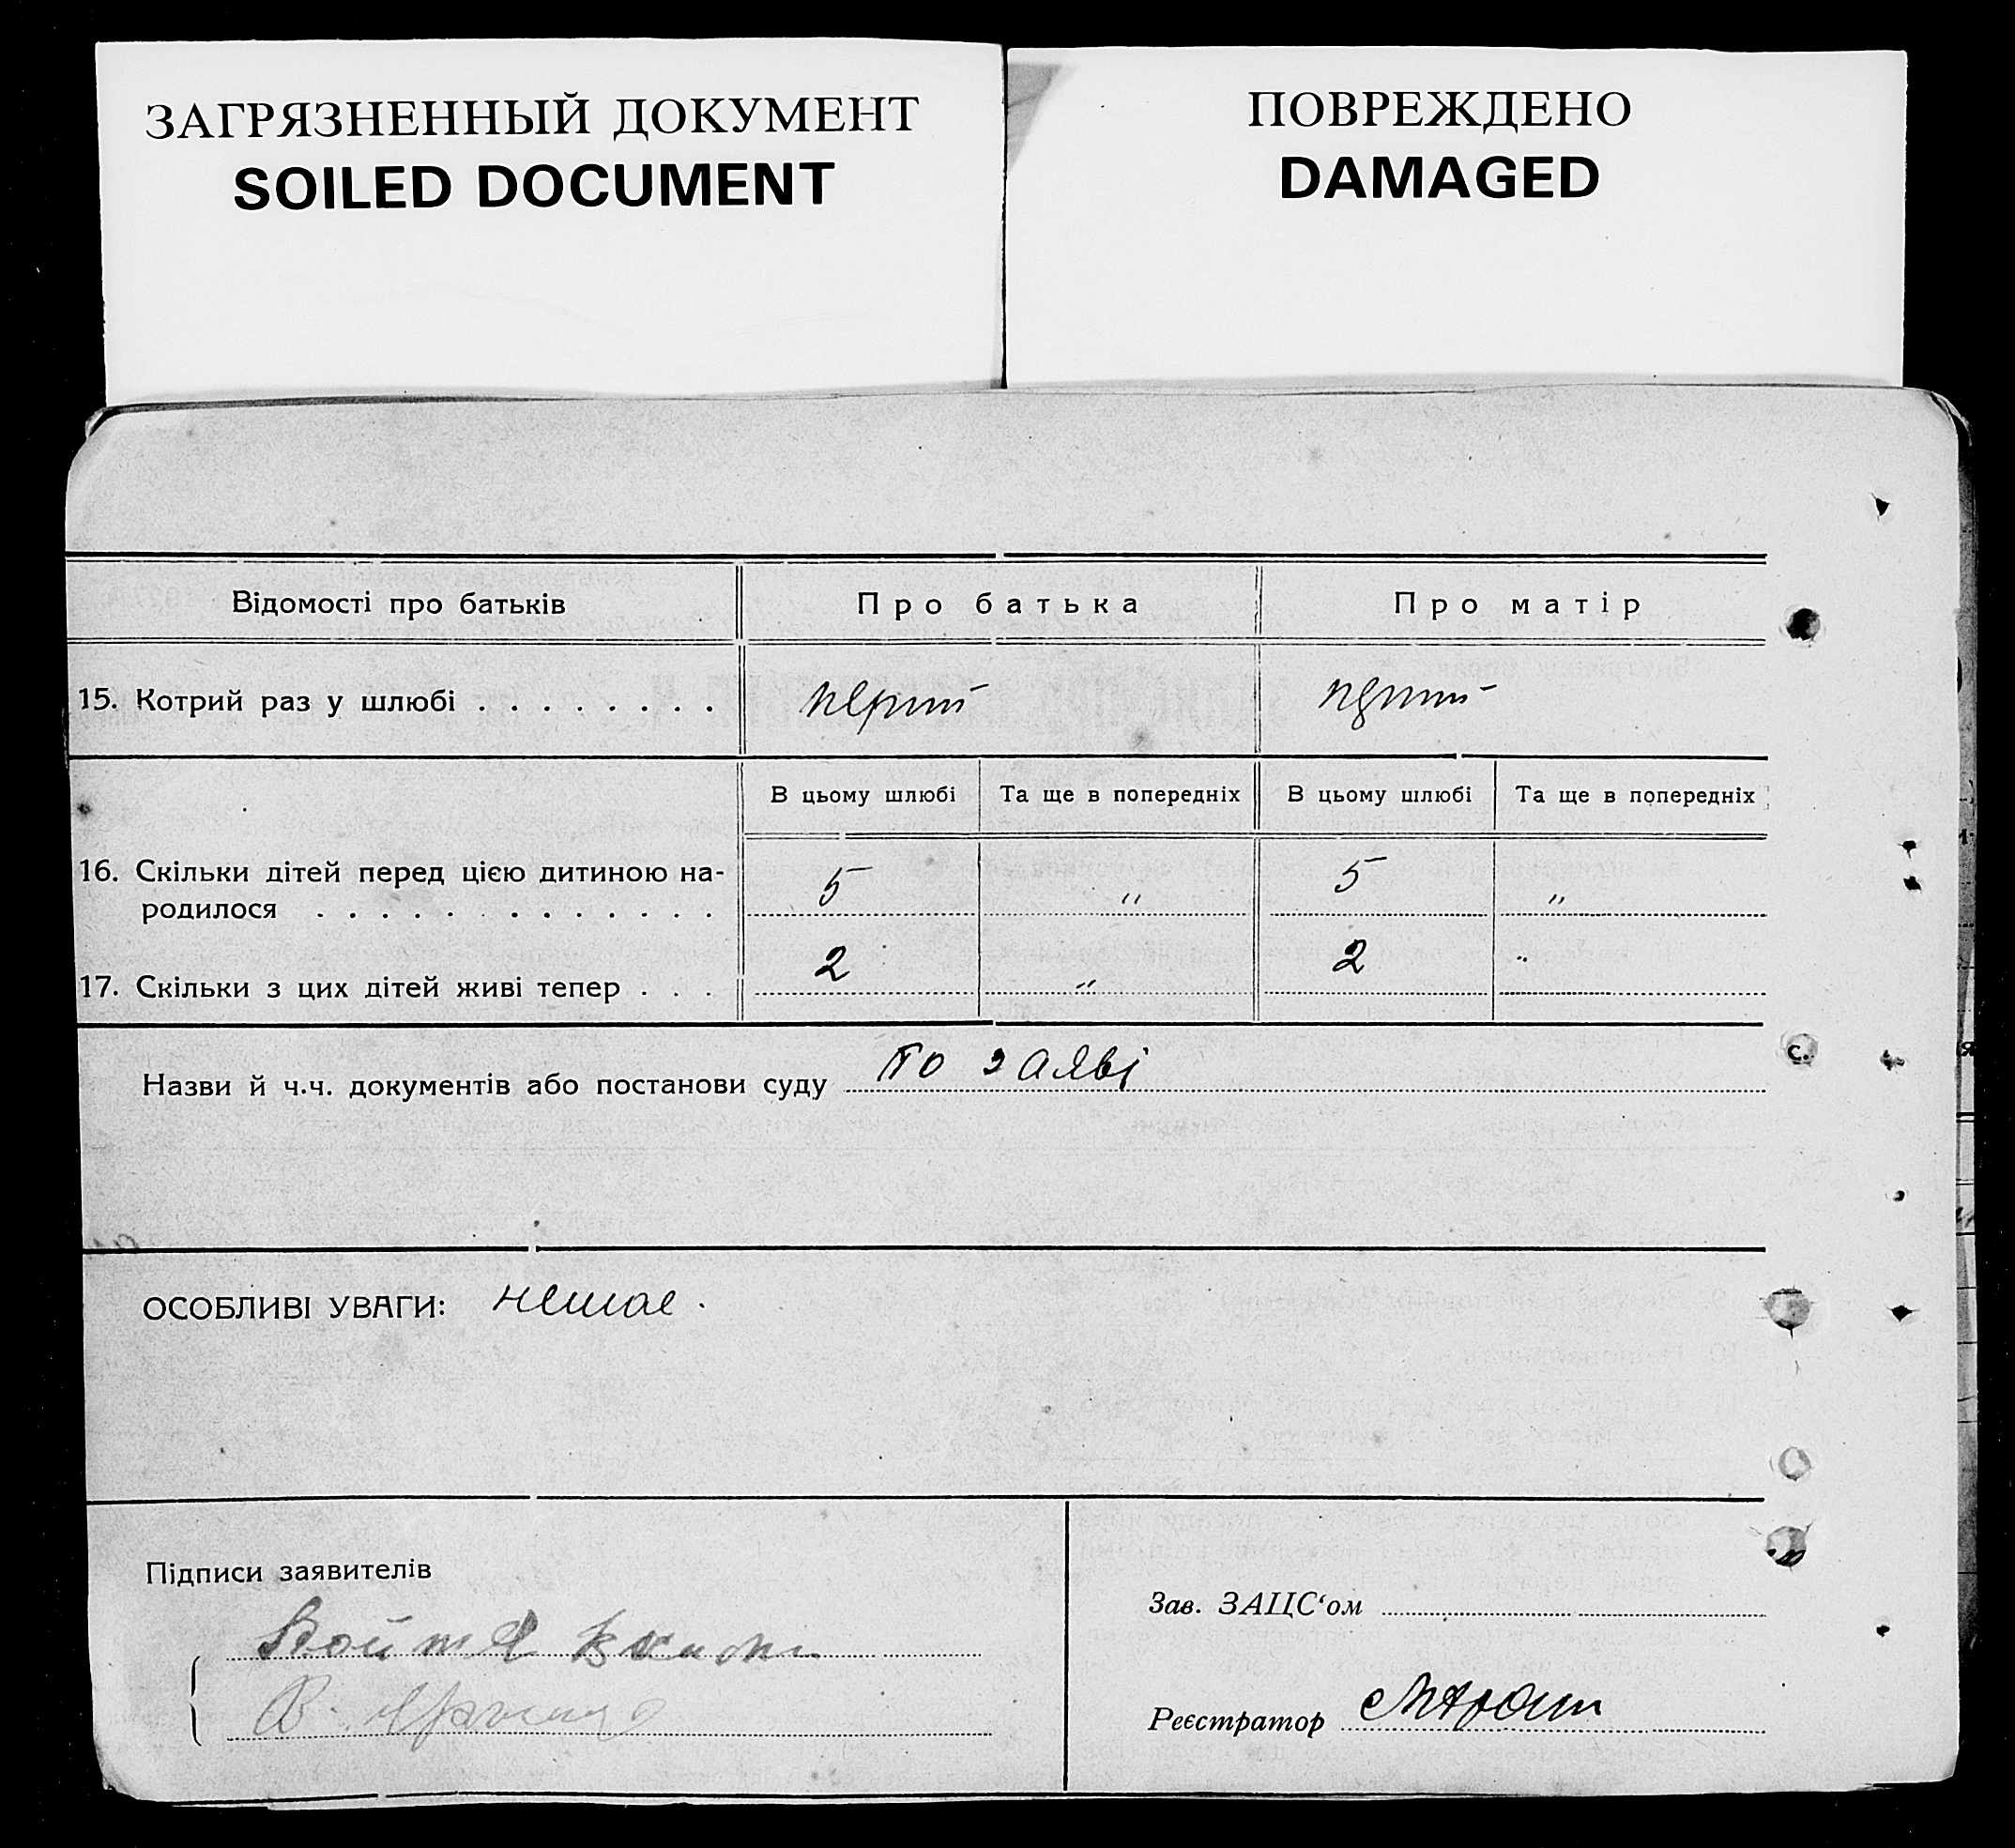 ЗАГРЯЗНЕННЫЙ ДОКУМЕНТ
SOILED DOCUMENT
ПОВРЕЖДЕНО
DAMAGED
Відомості про батьків Про батька Про матір
15. Котрий раз у шлюбі . . . . . . . .
В цьому шлюбі Та ще в попередніх В цьому шлюбі Та ще в попередніх
16. Скільки дітей перед цією дитиною на-
родилося . . . . . . . . . . . . . 5 „ 5 „
17. Скільки з цих дітей живі тепер . . . 2 „ 2 „
Назви й ч.ч. документів або постанови суду по заяві
с.
ОСОБЛИВІ УВАГИ: немає.
Підписи заявителів
Зав. ЗАЦС‘ом
Реєстратор